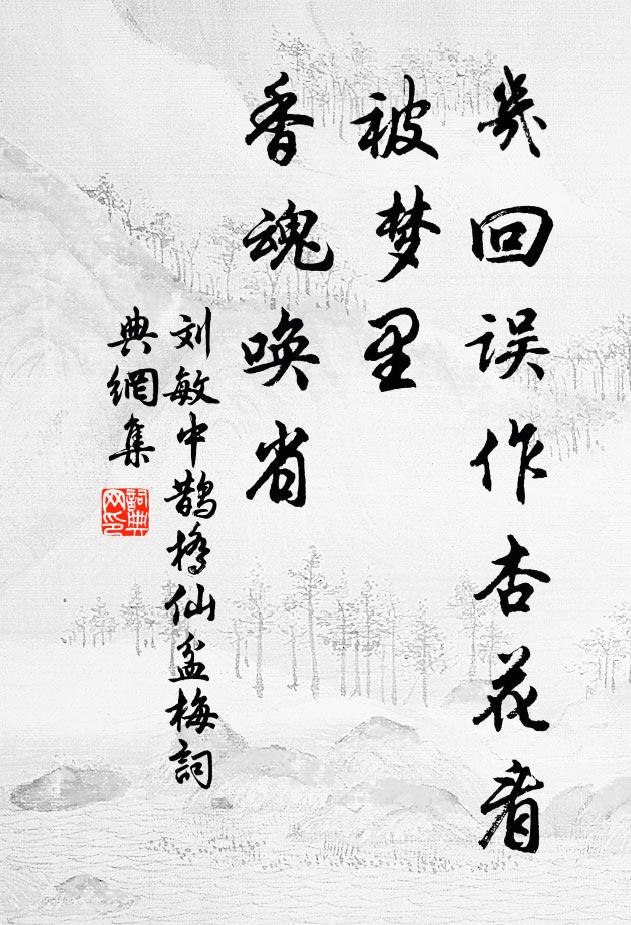 幾回误作杏花看
被梦里
香魂唤省
刘敏中鹊桥仙盆梅詞
典網集
詞典网印